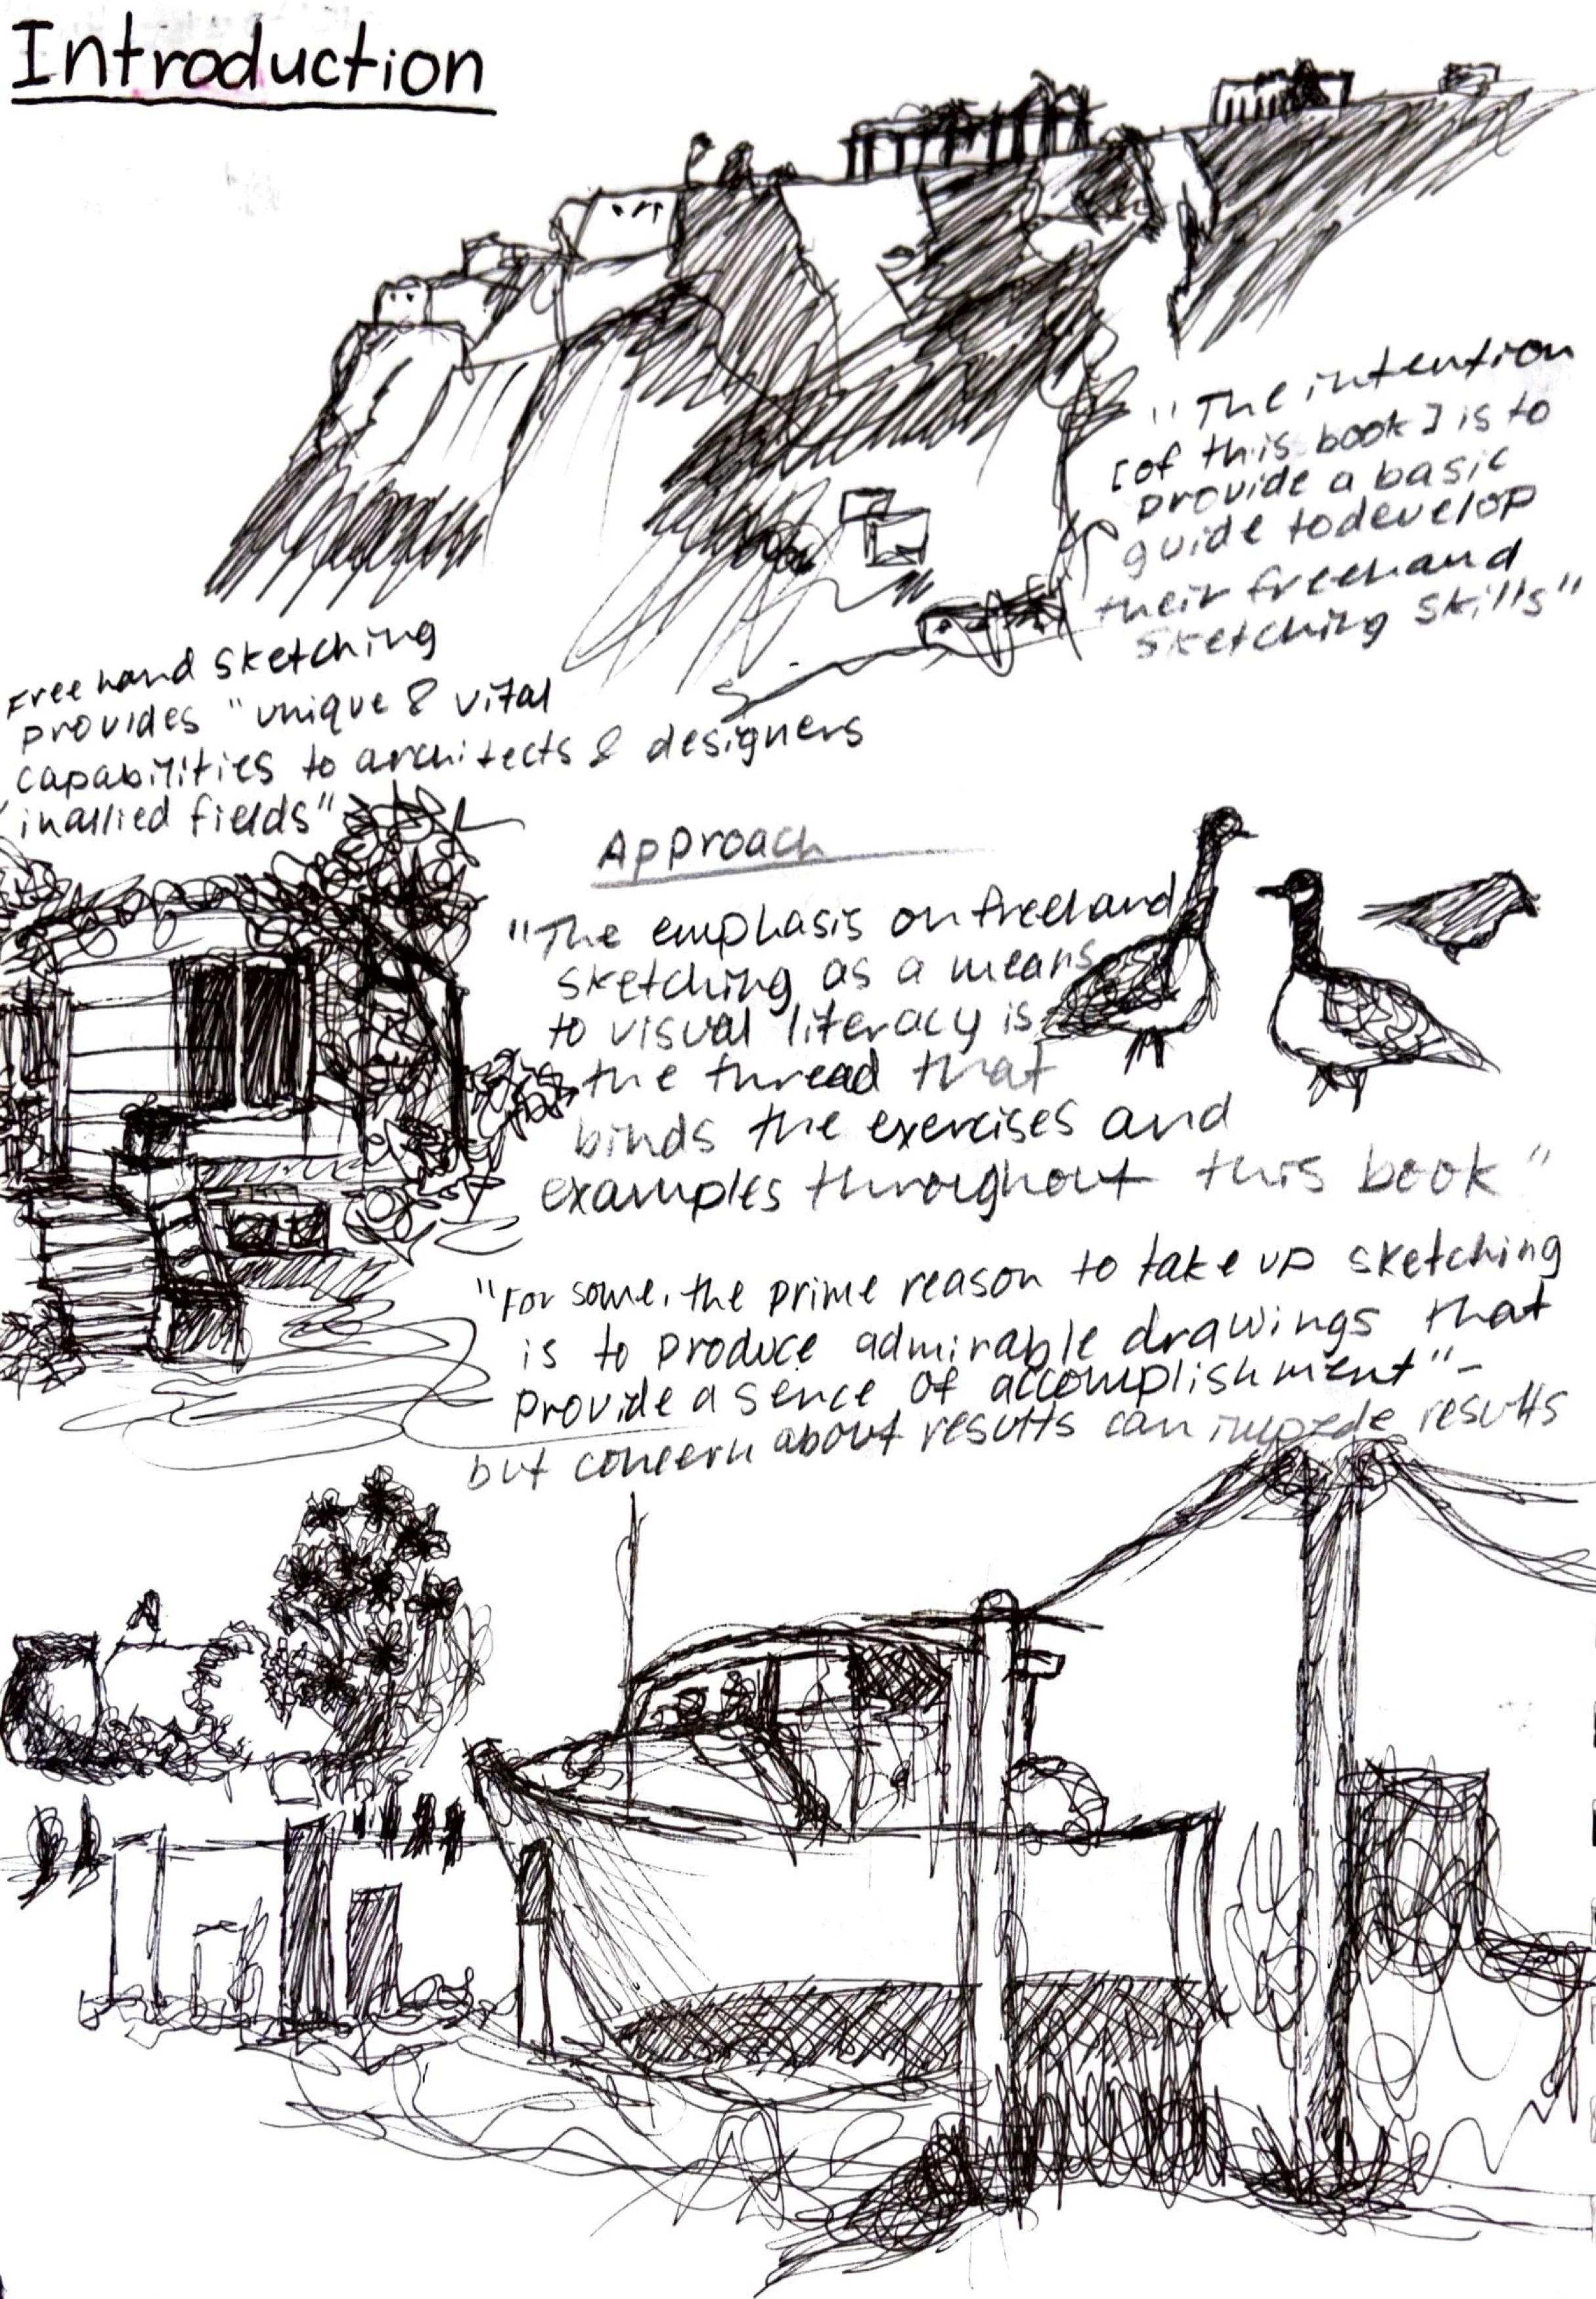 Introduction
"The intention
[of this book] is to
provide a basic
guide to develop
their freehand
sketching skills"
Freehand sketching
provides "unique & vital
capabilities to architects & designers
in allied fields"
Approach
"The emphasis on freehand
sketching as a means
to visual literacy is
the thread that
binds the exercises and
examples throughout this book"
"For some, the prime reason to take up sketching
is to produce admirable drawings that
provide a sence of accomplishment"-
but concern about results can impede results